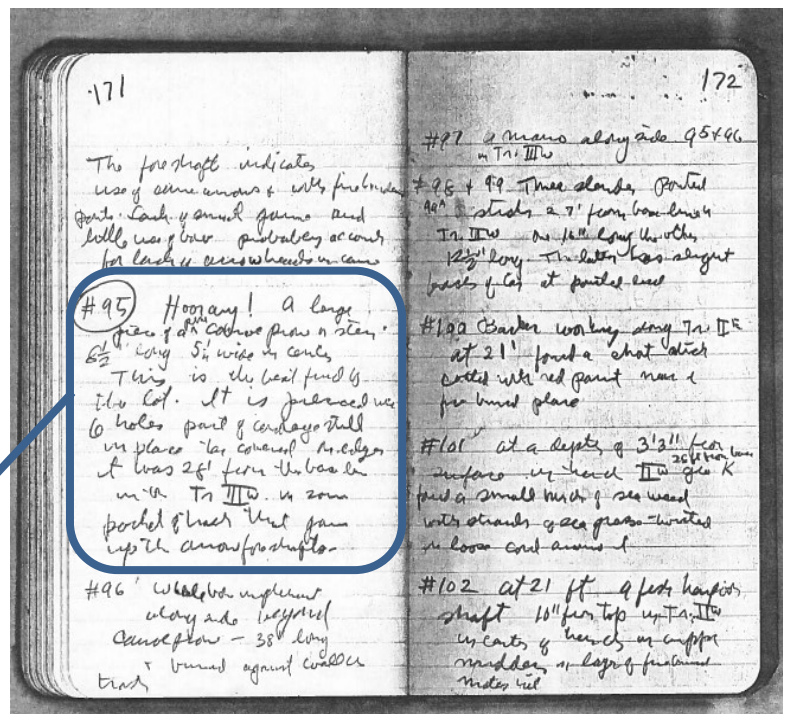 171
The foreshaft indicates
use of same arrows & with
parts. Lack of small game and
little use of bow probably accounts
for lack of arrowheads in cave
#95 Hooray! A large
piece of a canoe prow or stern
6½" long 5" wide in center
This is the best find of
the lot. It is pierced
6 holes part of cordage still
in place tar covered edges
it was 28' from the base line
in the Tr IIIw in same
pocket of that gave
up the arrow foreshafts
#96 Whalebone implement
along side beyond
Canoe prow - 38" long
burned against
trash
172
#97 a mano along side 95 + 96
in Tr. IIIw
#98 + 99 Three slender Pointed
99A sticks 27' from base line in
Tr. IIw one 16" long the other
12½" long. The latter has slight
traces of tar at pointed end
#100 Barker working along Tr. IIE
at 21' found a shot stick
coated with red paint near a
place
#101 at a depth of 3'3" from
surface in IIw K
26 ft from base
found a small bunch of sea weed
with strands of sea grass twisted
in loose cord around it
#102 at 21 ft a fish harpoon
shaft 10" from top in Tr. IIw
in center of in upper
midden in layer of
material